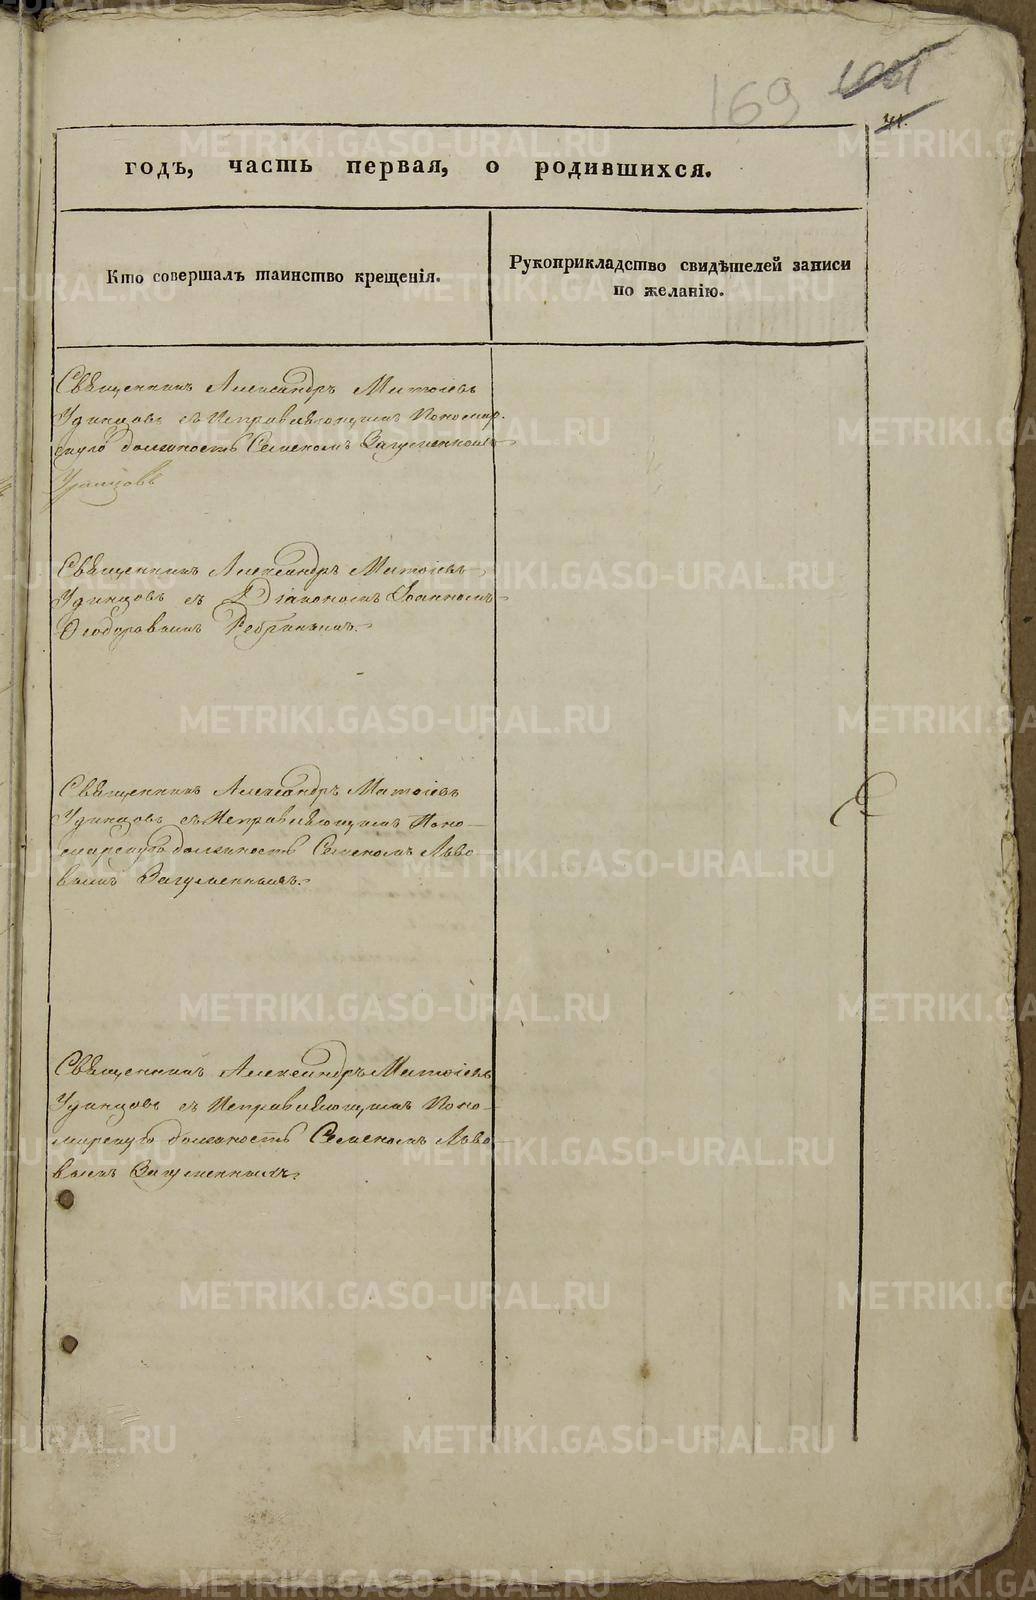 169
41.
годъ, часть первая, о родившихся.
Кто совершалъ таинство крещенія.
Рукоприкладство свидѣтелей записи
по желанію.
Священникъ Александръ Матѳіевъ
Удинцовъ съ Исправляющимъ Пономар-
скую должность Семеномъ Загуменнымъ
Священникъ Александръ Матѳіевъ
Удинцовъ съ Діакономъ Іоанномъ
Ѳеодоровымъ Ребринымъ.
Священникъ Александръ Матѳіевъ
Удинцовъ съ Исправляющимъ Поно-
марскую должность Семеномъ Льво-
вымъ Загуменнымъ.
Священникъ Александръ Матѳіевъ
Удинцовъ съ Исправляющимъ Поно-
марскую должность Семеномъ Льво-
вымъ Загуменнымъ.
METRIKI.GASO-URAL.RU